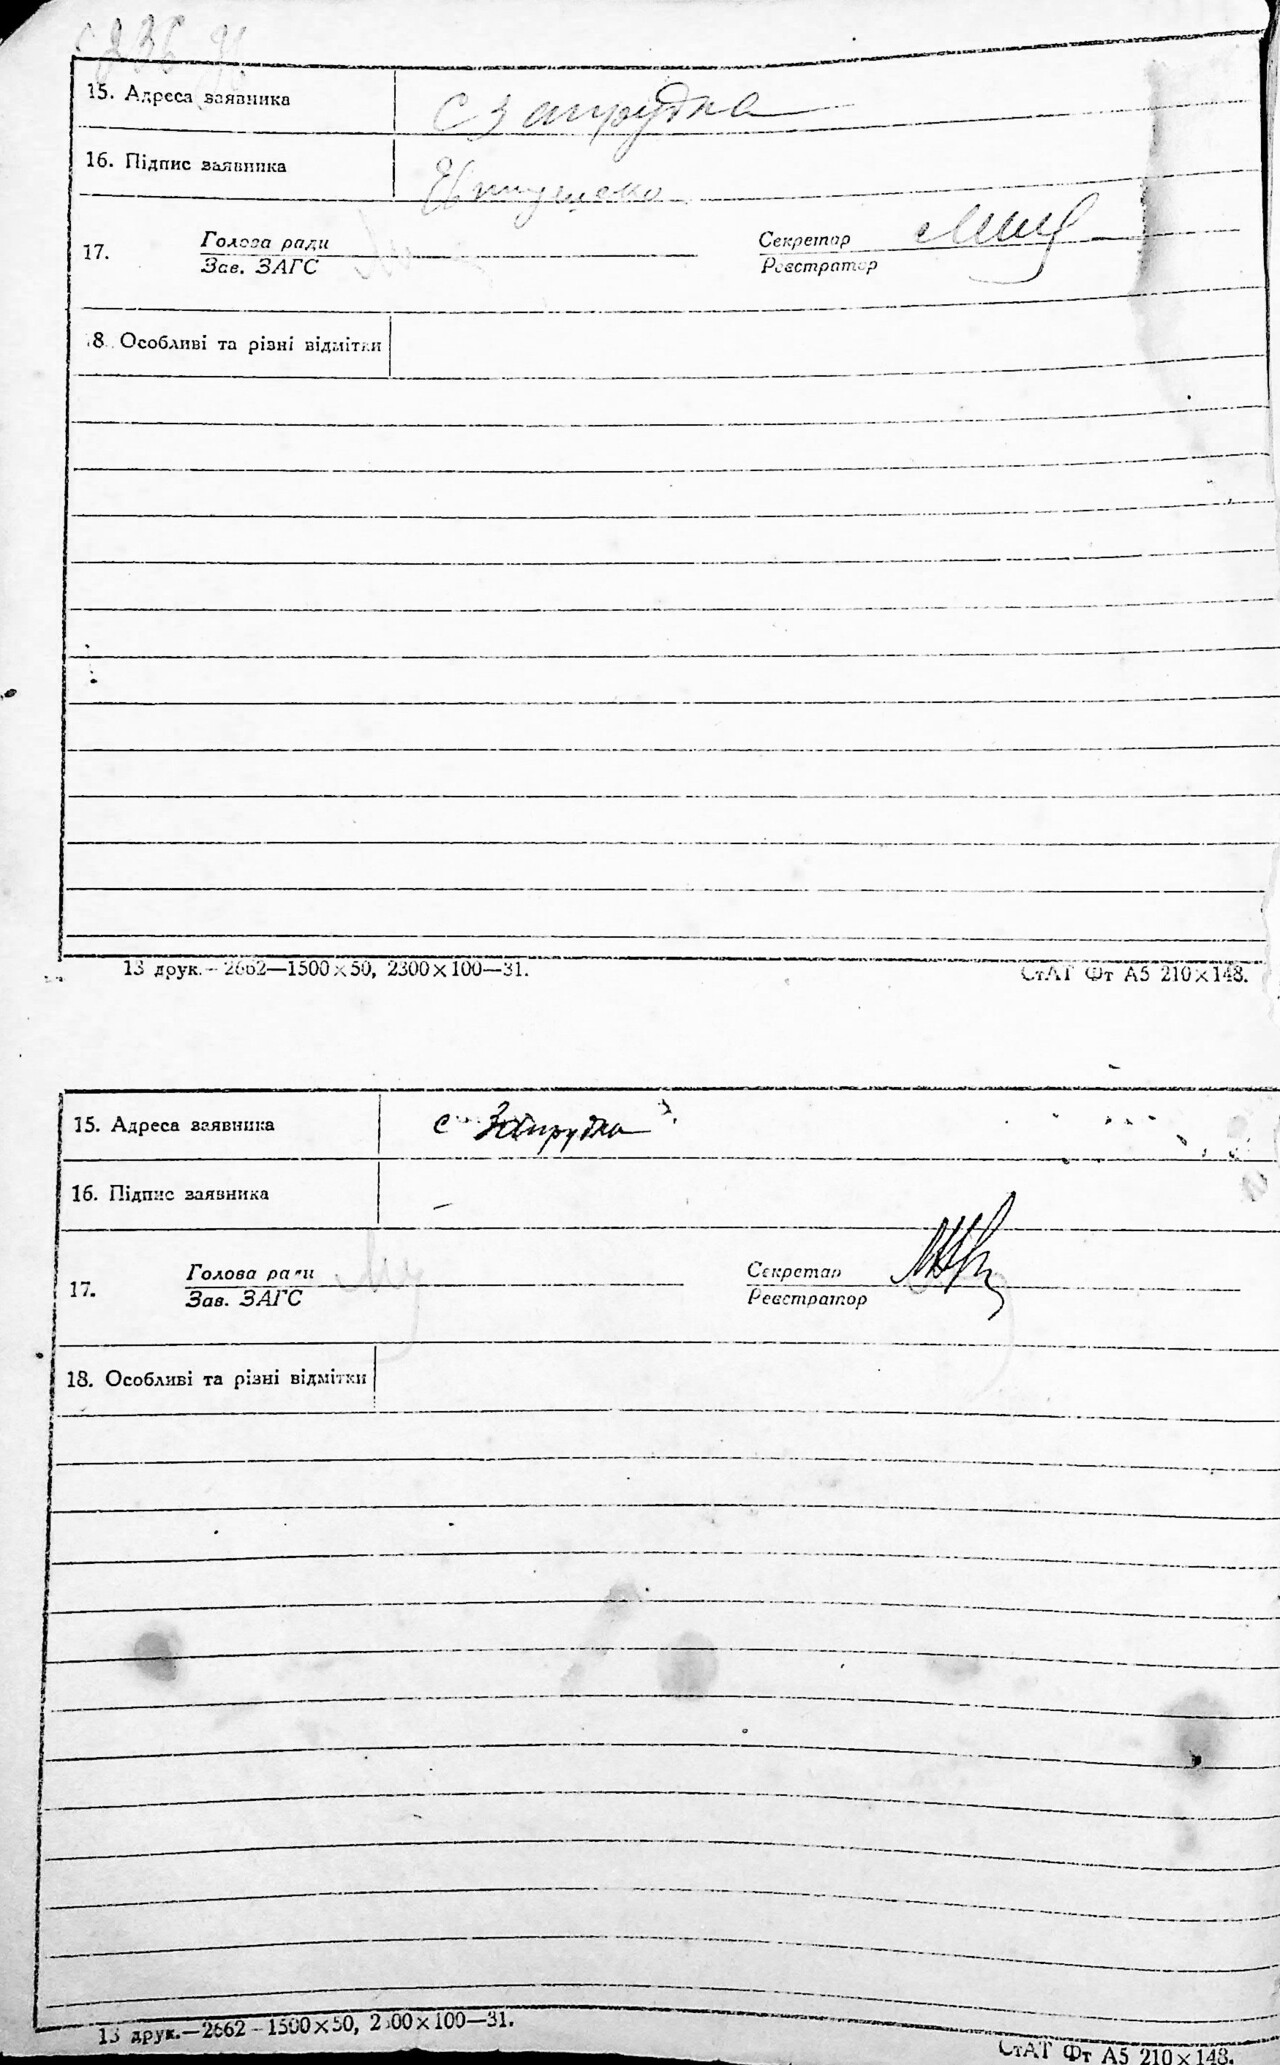 15. Адреса заявника с Запрудка
16. Підпис заявника
17. Голова ради Секретар
Зав. ЗАГС Реєстратор
18. Особливі та різні відмітки
13 друк.—2662—1500×50, 2300×100—31. СтАТ Фт А5 210×148.
15. Адреса заявника с Запрудка
16. Підпис заявника —
17. Голова ради Секретар
Зав. ЗАГС Реєстратор
18. Особливі та різні відмітки
13 друк.—2662—1500×50, 2300×100—31. СтАТ Фт А5 210×148.